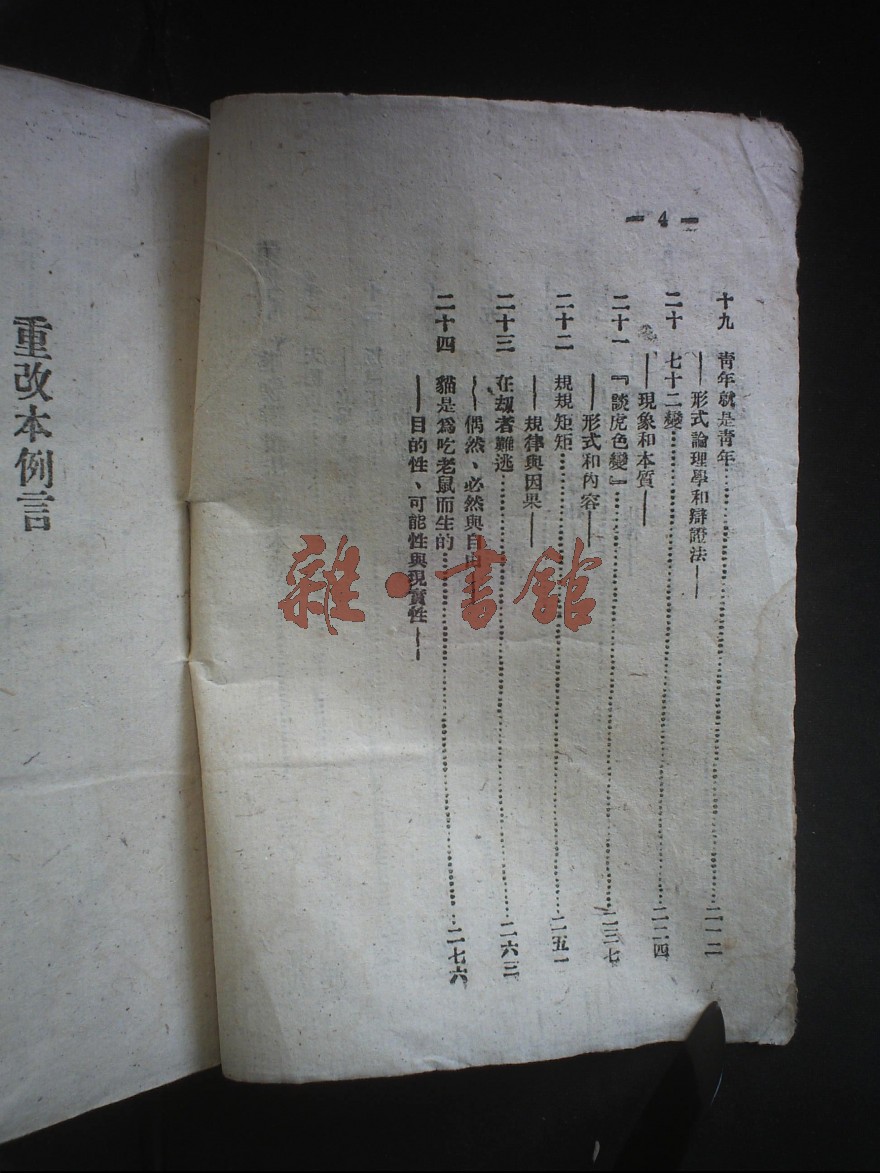 — 4 —
十九 青年就是青年……二一二
——形式論理學和辯證法——
二十 七十二變……二二四
——現象和本質——
二十一 『談虎色變』……二三七
——形式和內容——
二十二 規規矩矩……二五一
——規律與因果——
二十三 在劫者難逃……二六三
——偶然、必然與自由——
二十四 貓是為吃老鼠而生的……二七六
——目的性、可能性與現實性——
重改本例言
雜·書館